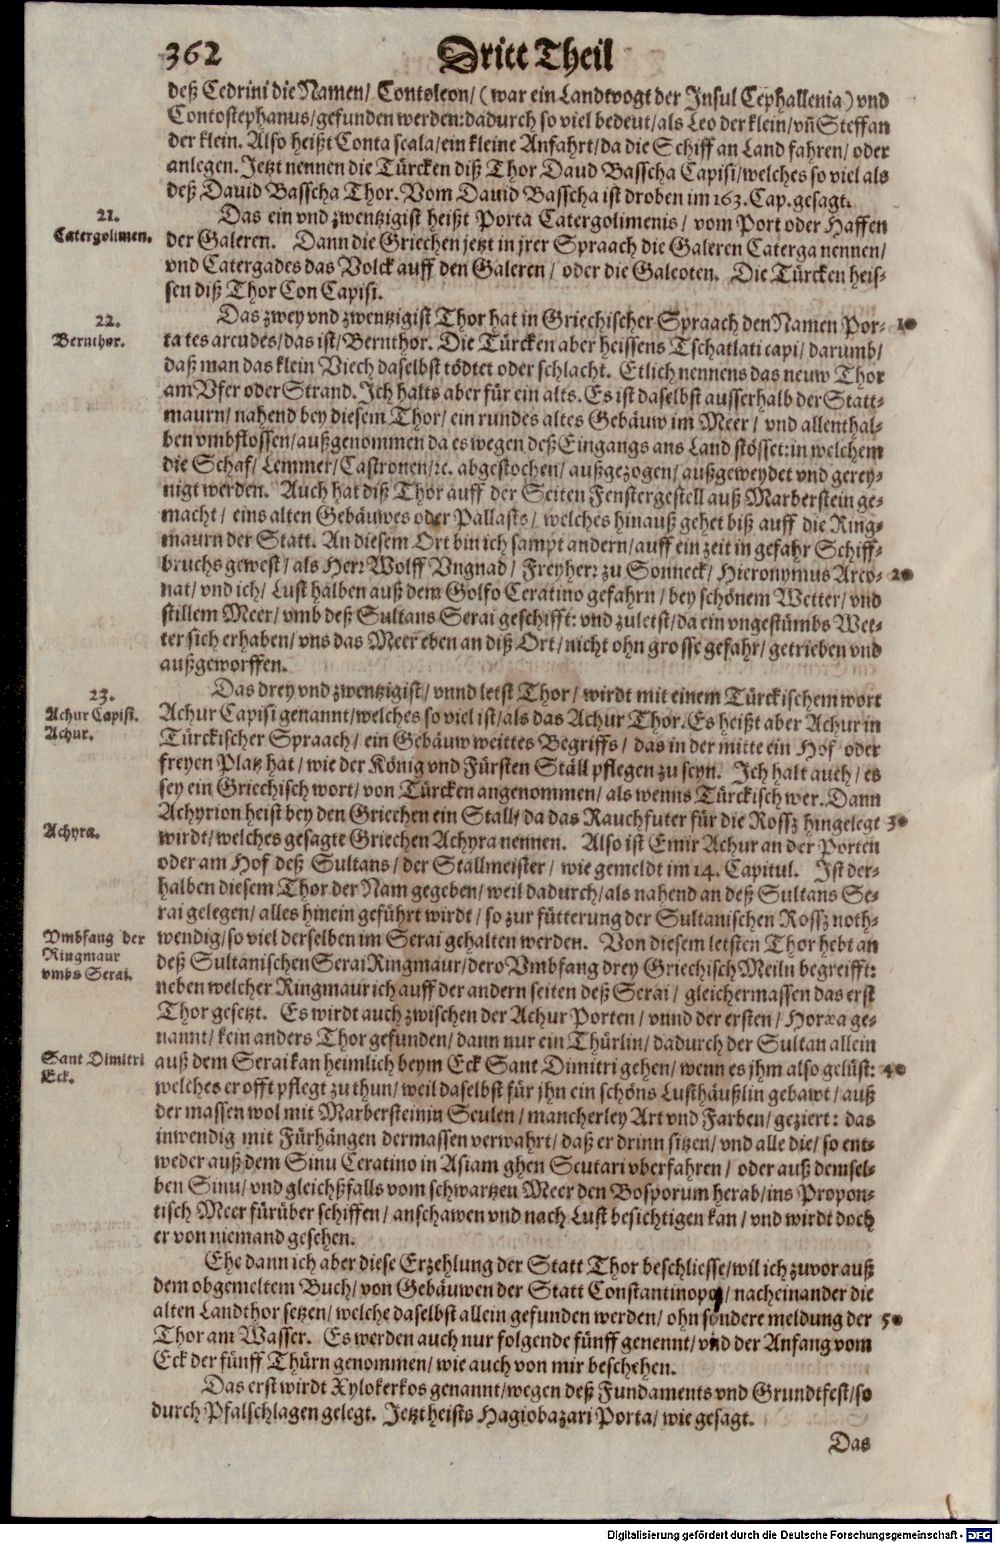 362
Dritt Theil
deß Cedrini die Namen/ Contoleon/ (war ein Landtvogt der Insul Cephallenia) vnd
Contostephanus/ gefunden werden: dadurch so viel bedeut/ als Leo der klein/ vn̄ Steffan
der klein. Also heißt Conta scala/ ein kleine Anfahrt/ da die Schiff an Land fahren/ oder
anlegen. Jetzt nennen die Türcken diß Thor Daud Basscha Capisi/ welches so viel als
deß Dauid Basscha Thor. Vom Dauid Basscha ist droben im 163. Cap. gesagt.
21.
Catergolimen.
Das ein vnd zwentzigist heißt Porta Catergolimenis/ vom Port oder Haffen
der Galeren. Dann die Griechen jetzt in jrer Spraach die Galeren Caterga nennen/
vnd Catergades das Volck auff den Galeren/ oder die Galeoten. Die Türcken heis-
sen diß Thor Con Capisi.
22.
Bernthor.
Das zwey vnd zwentzigist Thor hat in Griechischer Spraach den Namen Por- 10
ta tes arcudes/ das ist/ Bernthor. Die Türcken aber heissens Tschatlati capi/ darumb/
daß man das klein Viech daselbst tödtet oder schlacht. Etlich nennens das neuw Thor
am Vfer oder Strand. Ich halts aber für ein alts. Es ist daselbst ausserhalb der Statt-
maurn/ nahend bey diesem Thor/ ein rundes altes Gebäuw im Meer/ vnd allenthal-
ben vmbflossen/ außgenommen da es wegen deß Eingangs ans Land stösset: in welchem
die Schaf/ Lemmer/ Castronen/ ꝛc. abgestochen/ außgezogen/ außgeweydet vnd gerey-
nigt werden. Auch hat diß Thor auff der Seiten Fenstergestell auß Marberstein ge-
macht/ eins alten Gebäuwes oder Pallasts/ welches hinauß gehet biß auff die Ring-
maurn der Statt. An diesem Ort bin ich sampt andern/ auff ein zeit in gefahr Schiff-
bruchs gewest/ als Herꝛ Wolff Vngnad/ Freyherꝛ zu Sonneck/ Hieronymus Arco- 20
nat/ vnd ich/ Lust halben auß dem Golfo Ceratino gefahrn/ bey schönem Wetter/ vnd
stillem Meer/ vmb deß Sultans Serai geschifft: vnd zuletst/ da ein vngestümbs Wet-
ter sich erhaben/ vns das Meer eben an diß Ort/ nicht ohn grosse gefahr/ getrieben vnd
außgeworffen.
23.
Achur Capisi.
Achur.
Das drey vnd zwentzigist/ vnnd letst Thor/ wirdt mit einem Türckischem wort
Achur Capisi genannt/ welches so viel ist/ als das Achur Thor. Es heißt aber Achur in
Türckischer Spraach/ ein Gebäuw weittes Begriffs/ das in der mitte ein Hof oder
freyen Platz hat/ wie der König vnd Fürsten Ställ pflegen zu seyn. Ich halt auch/ es
sey ein Griechisch wort/ von Türcken angenommen/ als wenns Türckisch wer. Dann
Achyrion heist bey den Griechen ein Stall/ da das Rauchfuter für die Rossz hingelegt 30
Achyra.
wirdt/ welches gesagte Griechen Achyra nennen. Also ist Emir Achur an der Porten
oder am Hof deß Sultans/ der Stallmeister/ wie gemeldt im 14. Capitul. Ist der-
halben diesem Thor der Nam gegeben/ weil dadurch/ als nahend an deß Sultans Se-
rai gelegen/ alles hinein geführt wirdt/ so zur fütterung der Sultanischen Rossz noth-
Vmbfang der
Ringmaur
vmbs Serai.
wendig/ so viel derselben im Serai gehalten werden. Von diesem letsten Thor hebt an
deß Sultanischen Serai Ringmaur/ dero Vmbfang drey Griechisch Meiln begreifft:
neben welcher Ringmaur ich auff der andern seiten deß Serai/ gleichermassen das erst
Thor gesetzt. Es wirdt auch zwischen der Achur Porten/ vnnd der ersten/ Horæa ge-
nannt/ kein anders Thor gefunden/ dann nur ein Thürlin/ dadurch der Sultan allein
Sant Dimitri
Eck.
auß dem Serai kan heimlich beym Eck Sant Dimitri gehen/ wenn es jhm also gelüst: 40
welches er offt pflegt zu thun/ weil daselbst für jhn ein schöns Lusthäußlin gebawt/ auß
der massen wol mit Marbersteinin Seulen/ mancherley Art vnd Farben/ geziert: das
inwendig mit Fürhängen dermassen verwahrt/ daß er drinn sitzen/ vnd alle die/ so ent-
weder auß dem Sinu Ceratino in Asiam ghen Scutari vberfahren/ oder auß demsel-
ben Sinu/ vnd gleichßfalls vom schwartzen Meer den Bosporum herab/ ins Propon-
tisch Meer fürüber schiffen/ anschawen vnd nach Lust besichtigen kan/ vnd wirdt doch
er von niemand gesehen.
Ehe dann ich aber diese Erzehlung der Statt Thor beschliesse/ wil ich zuvor auß
dem obgemeltem Buch/ von Gebäuwen der Statt Constantinopol/ nacheinander die
alten Landthor setzen/ welche daselbst allein gefunden werden/ ohn sondere meldung der 50
Thor am Wasser. Es werden auch nur folgende fünff genennt/ vnd der Anfang vom
Eck der fünff Thürn genommen/ wie auch von mir beschehen.
Das erst wirdt Xylokerkos genannt/ wegen deß Fundaments vnd Grundtfest/ so
durch Pfalschlagen gelegt. Jetzt heists Hagiobazari Porta/ wie gesagt.
Das
Digitalisierung gefördert durch die Deutsche Forschungsgemeinschaft - DFG